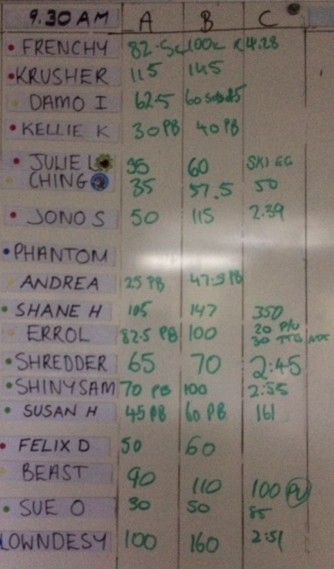 9.30 AM A B C
FRENCHY 82.5c 100c 4.28
KRUSHER 115 145
DAMO I 62.5 60
KELLIE K 30 PB 40 PB
JULIE L 35 60 SKI EG
CHING 35 57.5 50
JONO S 50 115 2:39
PHANTOM
ANDREA 25 PB 47.5 PB
SHANE H 105 147 350
ERROL 82.5 PB 100 20 P/U
30
SHREDDER 65 70 2:45
SHINYSAM 70 PB 100 2:55
SUSAN H 45 PB 60 PB 161
FELIX D 50 60
BEAST 90 110 100 PU
SUE O 30 50 85
LOWNDESY 100 160 2:51